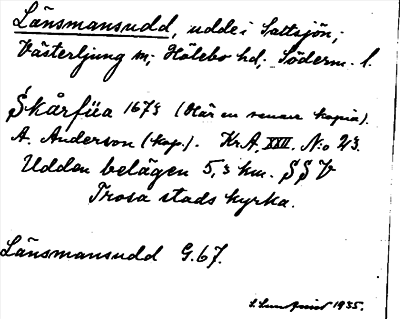 Länsmansudd, udde i Saltsjön,
Västerljung sn; Hölebo hd; Söderm. l.
Skårfüa 1673 (Här en senare kopia).
A. Anderson (kop.). Kr.A. XXII. No 23.
Udden belägen 5,3 km. SSV
Trosa stads kyrka.
Länsmansudd G.67.
1935.